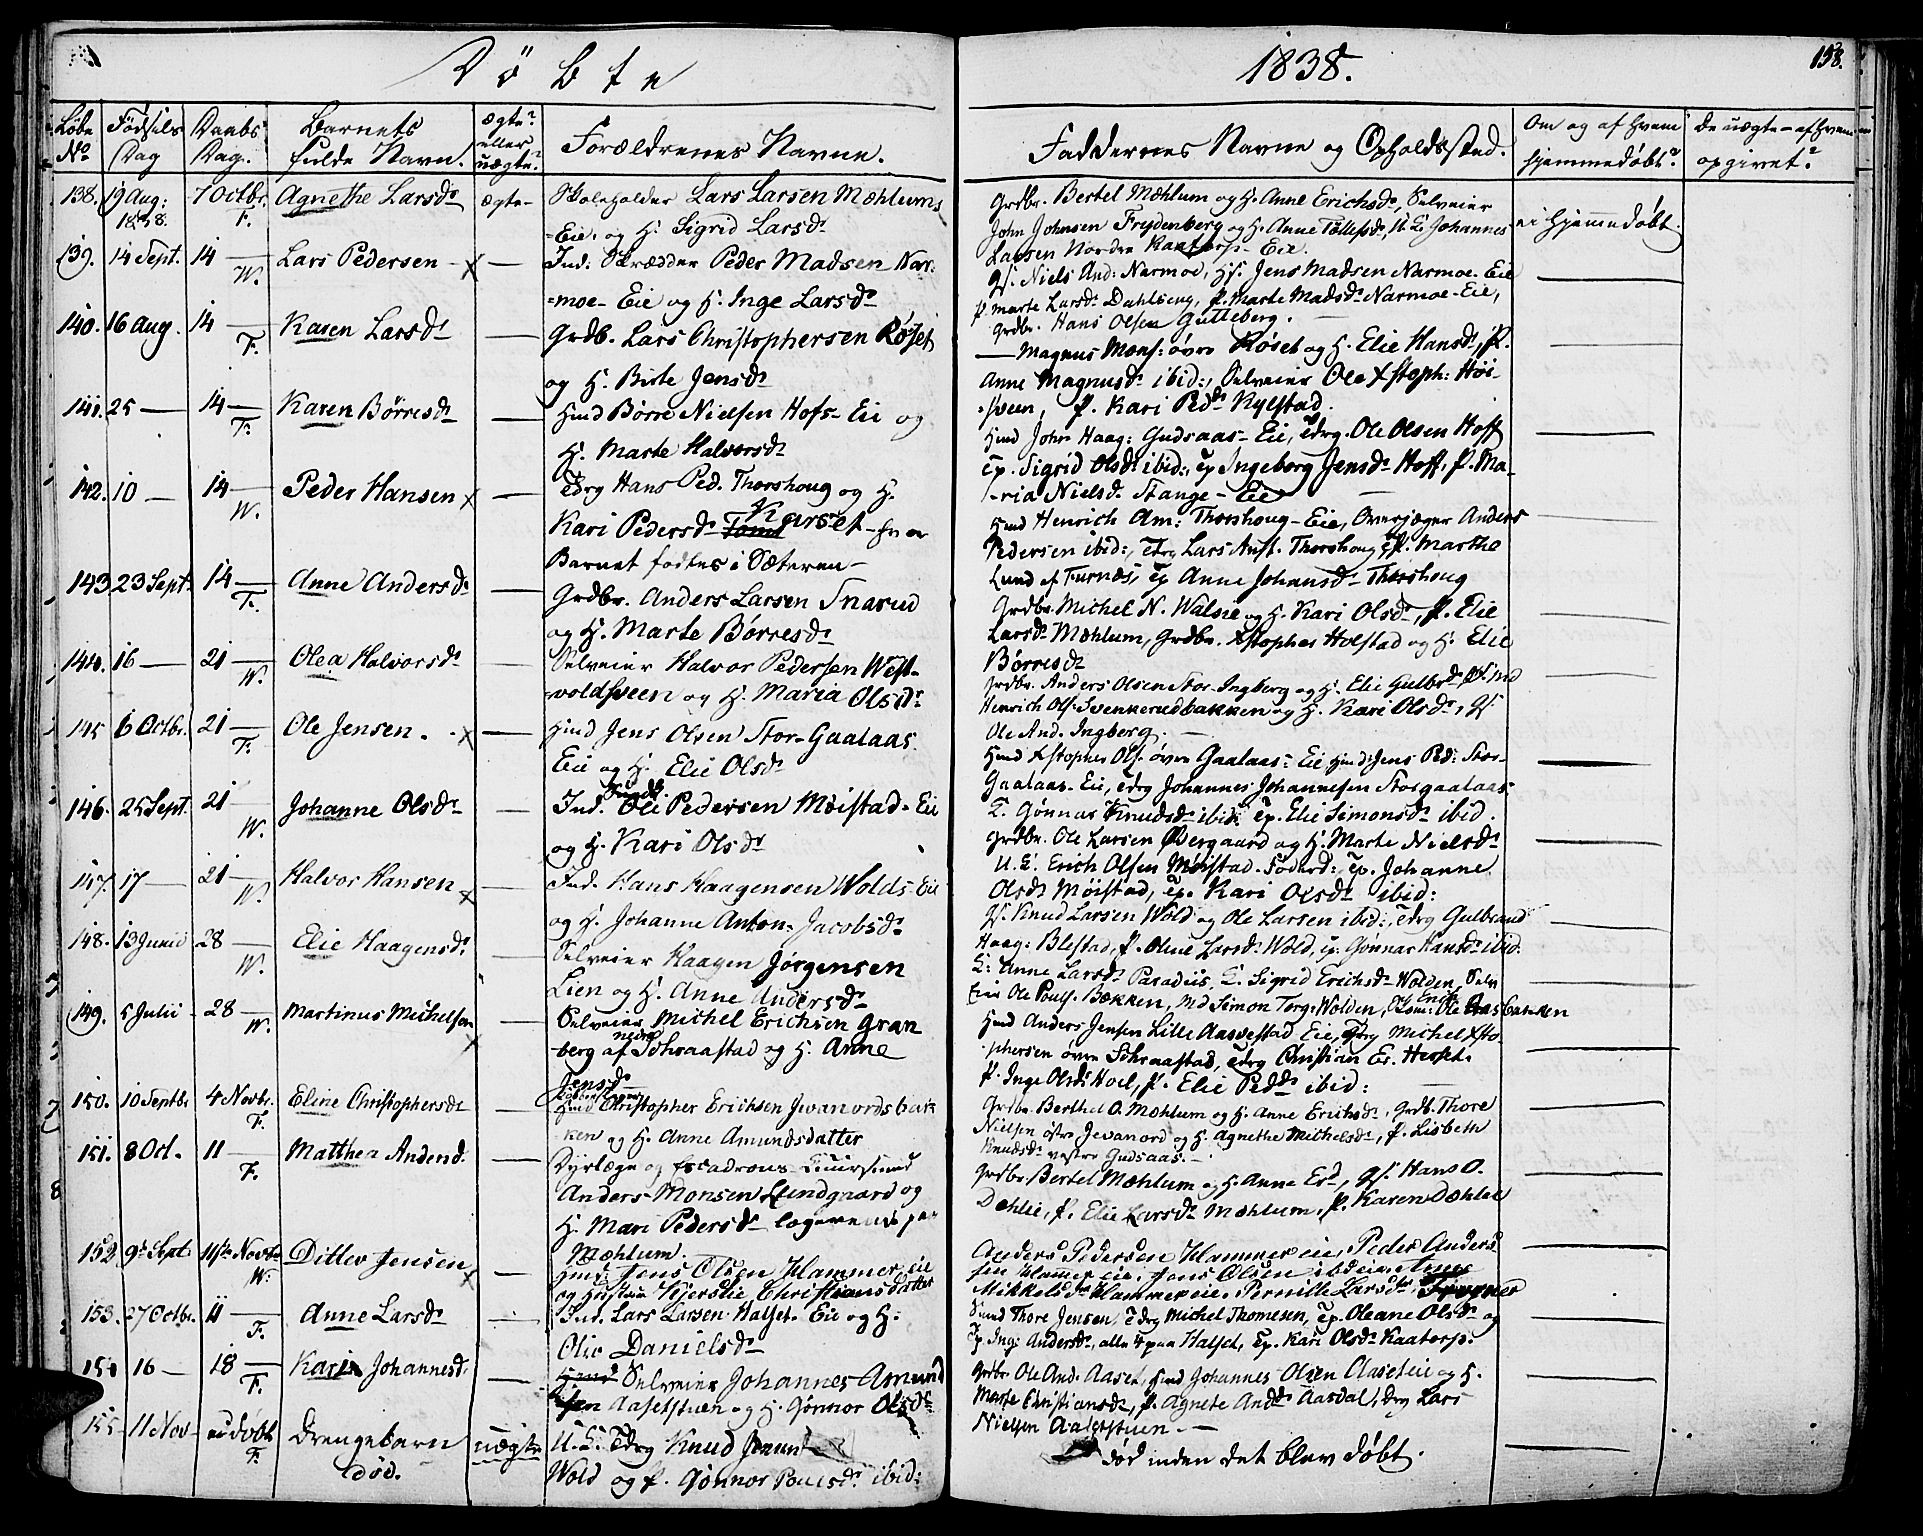 Døbte
1838.
158.
Løbe No
Fødsels Dag
Daabs Dag.
Barnets fulde Navn.
ægte? eller uægte?
Forældrenes Navne.
Faddernes Navne og Opholdssted.
Om og af hvem hjemmedøbt?
De uægte - af hvem opgivet?
138. 19 Aug: 1838. 7 Octbr. F. Agnethe Larsdr ægte- Skoleholder Lars Larsen Mæhlums
=Eie. og H. Sigrid Larsdr
Grdbr. Bertel Mæhlum og H. Anne Erichsdr, Selveier
John Johnsen Frydenberg og H. Anne Tollefsdr, U. K. Johannes
Larsen Nordre Kaatorp- Eie.
ei Hjemmedøbt.
139. 14 Sept. 14 — W. Lars Pedersen - x — Ind: Skrædder Peder Madsen Nar-
=moe- Eie og H. Inge Larsdr
Gf. Niels And: Narmoe, Hf. Jens Madsen Narmoe- Eie
P. Marte Larsdr Dahlberg, P. Marte Madsdr Narmoe-Eie,
Grdbr. Hans Olsen Gutteberg.
140. 16 Aug. 14 — F. Karen Larsdr — Grdb. Lars Christophersen Røset
og H. Birte Jensdr
— Magnus Mons: øvre Røset og H. Elie Hansdr, P.
Anne Magnusdr ibid:, Selveier Ole Xstoph: Høi-
=sveen, P. Kari Pedr Kylstad.
141. 25 — 14 — F. Karen Børresdr — Hmd Børre Nielsen Hofs- Eie og
H. Marte Halvorsdr
Hmd John Haag: Gudsaas- Eie, Tdrg. Ole Olsen Hoff
Tp. Sigrid Olsdr ibid:, Tp Ingeborg Jensdr Hoff, P. Ma-
-ria Nielsdr Stange- Eie
142. 10 — 14 — W. Peder Hansen x — Tdrg Hans Ped. Thorshoug og H.
Kari Pedersdr Karset - hvor
Barnet fødtes i Sæteren-
Hmd Henrich Am: Thorshoug- Eie, Overjæger Anders
Pedersen ibid:, Tdrg Lars Anst. Thorshoug P. Marthe
Lund af Furnæs, Tp Anne Johansdr Thorshoug
143 23 Sept. 14 — F. Anne Andersdr — Grdbr. Anders Larsen Snarud
og H. Marte Børresdr
Grdbr. Michel N. Walsie og H. Kari Olsdr, P. Elie
Larsdr Mæhlum, Grdbr. Xstopher Holstad og H. Elie
Børresdr
144. 16 — 21 — W. Olea Halvorsdr — Selveier Halvor Pedersen West-
=voldsveen og H. Maria Olsdr
Grdbr. Anders Olsen Stor-Ingberg og H. Elie Gulbrdr, Hmd
Hinrich Ols. Svenkerudbakken og H. Kari Olsdr, Gf.
Ole And. Ingberg.
145 6 Octbr. 21 — F. Ole Jensen. - x — Hmd Jens Olsen Stor-Gaalaas
Eie og H. Elie Olsdr
Hmd Xstopher Ols. øvre Gaalaas- Eie, Hmd: Jens Ped: Stor-
Gaalaas- Eie, Tdrg Johannes Johannesen Storgaalaas
K. Gønnar Knudsdr ibid: Tp. Elie Simonsdr ibid.
146. 25 Sept. 21 — W. Johanne Olsdr — Ind. Smed Ole Pedersen Møistad- Eie
og H. Kari Olsdr
Grdbr. Ole Larsen Øvergaard og H. Marte Nielsdr
U. K. Erich Olsen Møistad. Foderd: Tp. Johanne
Olsdr Møistad, Tp. Kari Olsdr ibid:
147. 17 — 21 — W. Halvor Hansen x — Ind. Hans Haagensen Wolds- Eie
og H. Johanne Anton: Jacobsdr
Gf. Knud Larsen Wold og Ole Larsen ibid:, Tdrg Gulbrand
Haag: Blestad, P. Oline Larsdr Wold, Tp: Gønnar Hansdr ibid:
148. 13 Junii 28 — W. Elie Haagensdr — Selveier Haagen Jørgensen
Lien og H. Anne Andersdr
K: Anne Larsdr Paradiis, K. Sigrid Erichsdr Wolden, Selv
Eier Ole Pouls. Bækken, Md Simon Torg: Wolden, Ole Erichs. Aasbakken
149. 5 Julii 28 — W. Martinus Michelsen x — Selveier Michel Erichsen Gran
berg af nedre Schraastad og H. Anne
Jensdr
Hmd Anders Jensen Lille Aasvestad Eie, Tdrg Michel Xsto-
phersen øvre Schraastad, Tdrg Christian Er. Herset.
P. Inge Olsdr Hoel, P. Elie Pedr ibid:
150. 10 Septbr 4 Novbr. F. Eline Christophersdr — Hmd Christopher Erichsen Jevanordsbak-
ken og H. Anne Amundsdatter
Grdbr. Berthel O. Mæhlum og H. Anne Erichsdr, Grdb. Thore
Nielsen østre Jevanord og H. Agnethe Michelsdr, P. Lisbeth
Knudsdr vestre Gudsaas.-
151. 8 Oct. 11 — F. Matthea Andersd. — Dyrlæge og Escadrons-Cuursmed
Anders Monsen Lundgaard og
H. Mari Pedersdr logerende paa
Mæhlum.
Grdbr Bertel Mæhlum og H. Anne Erd, Gf. Hans O.
Dæhlie, P. Elie Larsdr Mæhlum, P. Karen Dæhlie
152 9de Sept 11te Novbr W. Ditlev Jensen x — Hmd: Jens Olsen Hammer eie
og Hustru Kjerstie Christiansdatter
Anders Pedersen Hammer eie, Peder Anders
sen Hammer eie, Jens Olsen ibid eie,
Mikkelsdr Hammer eie, Pernille Larsdr
153. 27 Octbr. 11 — F. Anne Larsdr — Ind. Lars Larsen Halset- Eie og H.
Olie Danielsdr
Smed Thore Jensen, Tdrg Michel Thomesen, Tp. Oleane Olsdr og
Tp. Ing: Andersdr, alle 4 paa Halset, Tp. Kari Olsdr Kaatorp.
154 16 — 18 — F. Kari Johannesd. — Hmd Selveier Johannes Amund
sen Aasetstuen og H. Gønnor Olsdr
Grdbr. Ole And. Aaset, Hmd Johannes Olsen Aaset eie og H.
Marte Christiansdr, P. Agnete Andr Aasdal, Tdrg Lars
Nielsen Aasetstuen. —
155. 11 Nov- udøbt F. Drengebarn død. uægte U. K. Tdrg Knud
Wold og P. Gønnor Poulsdr ibid:
død inden det blev døbt.